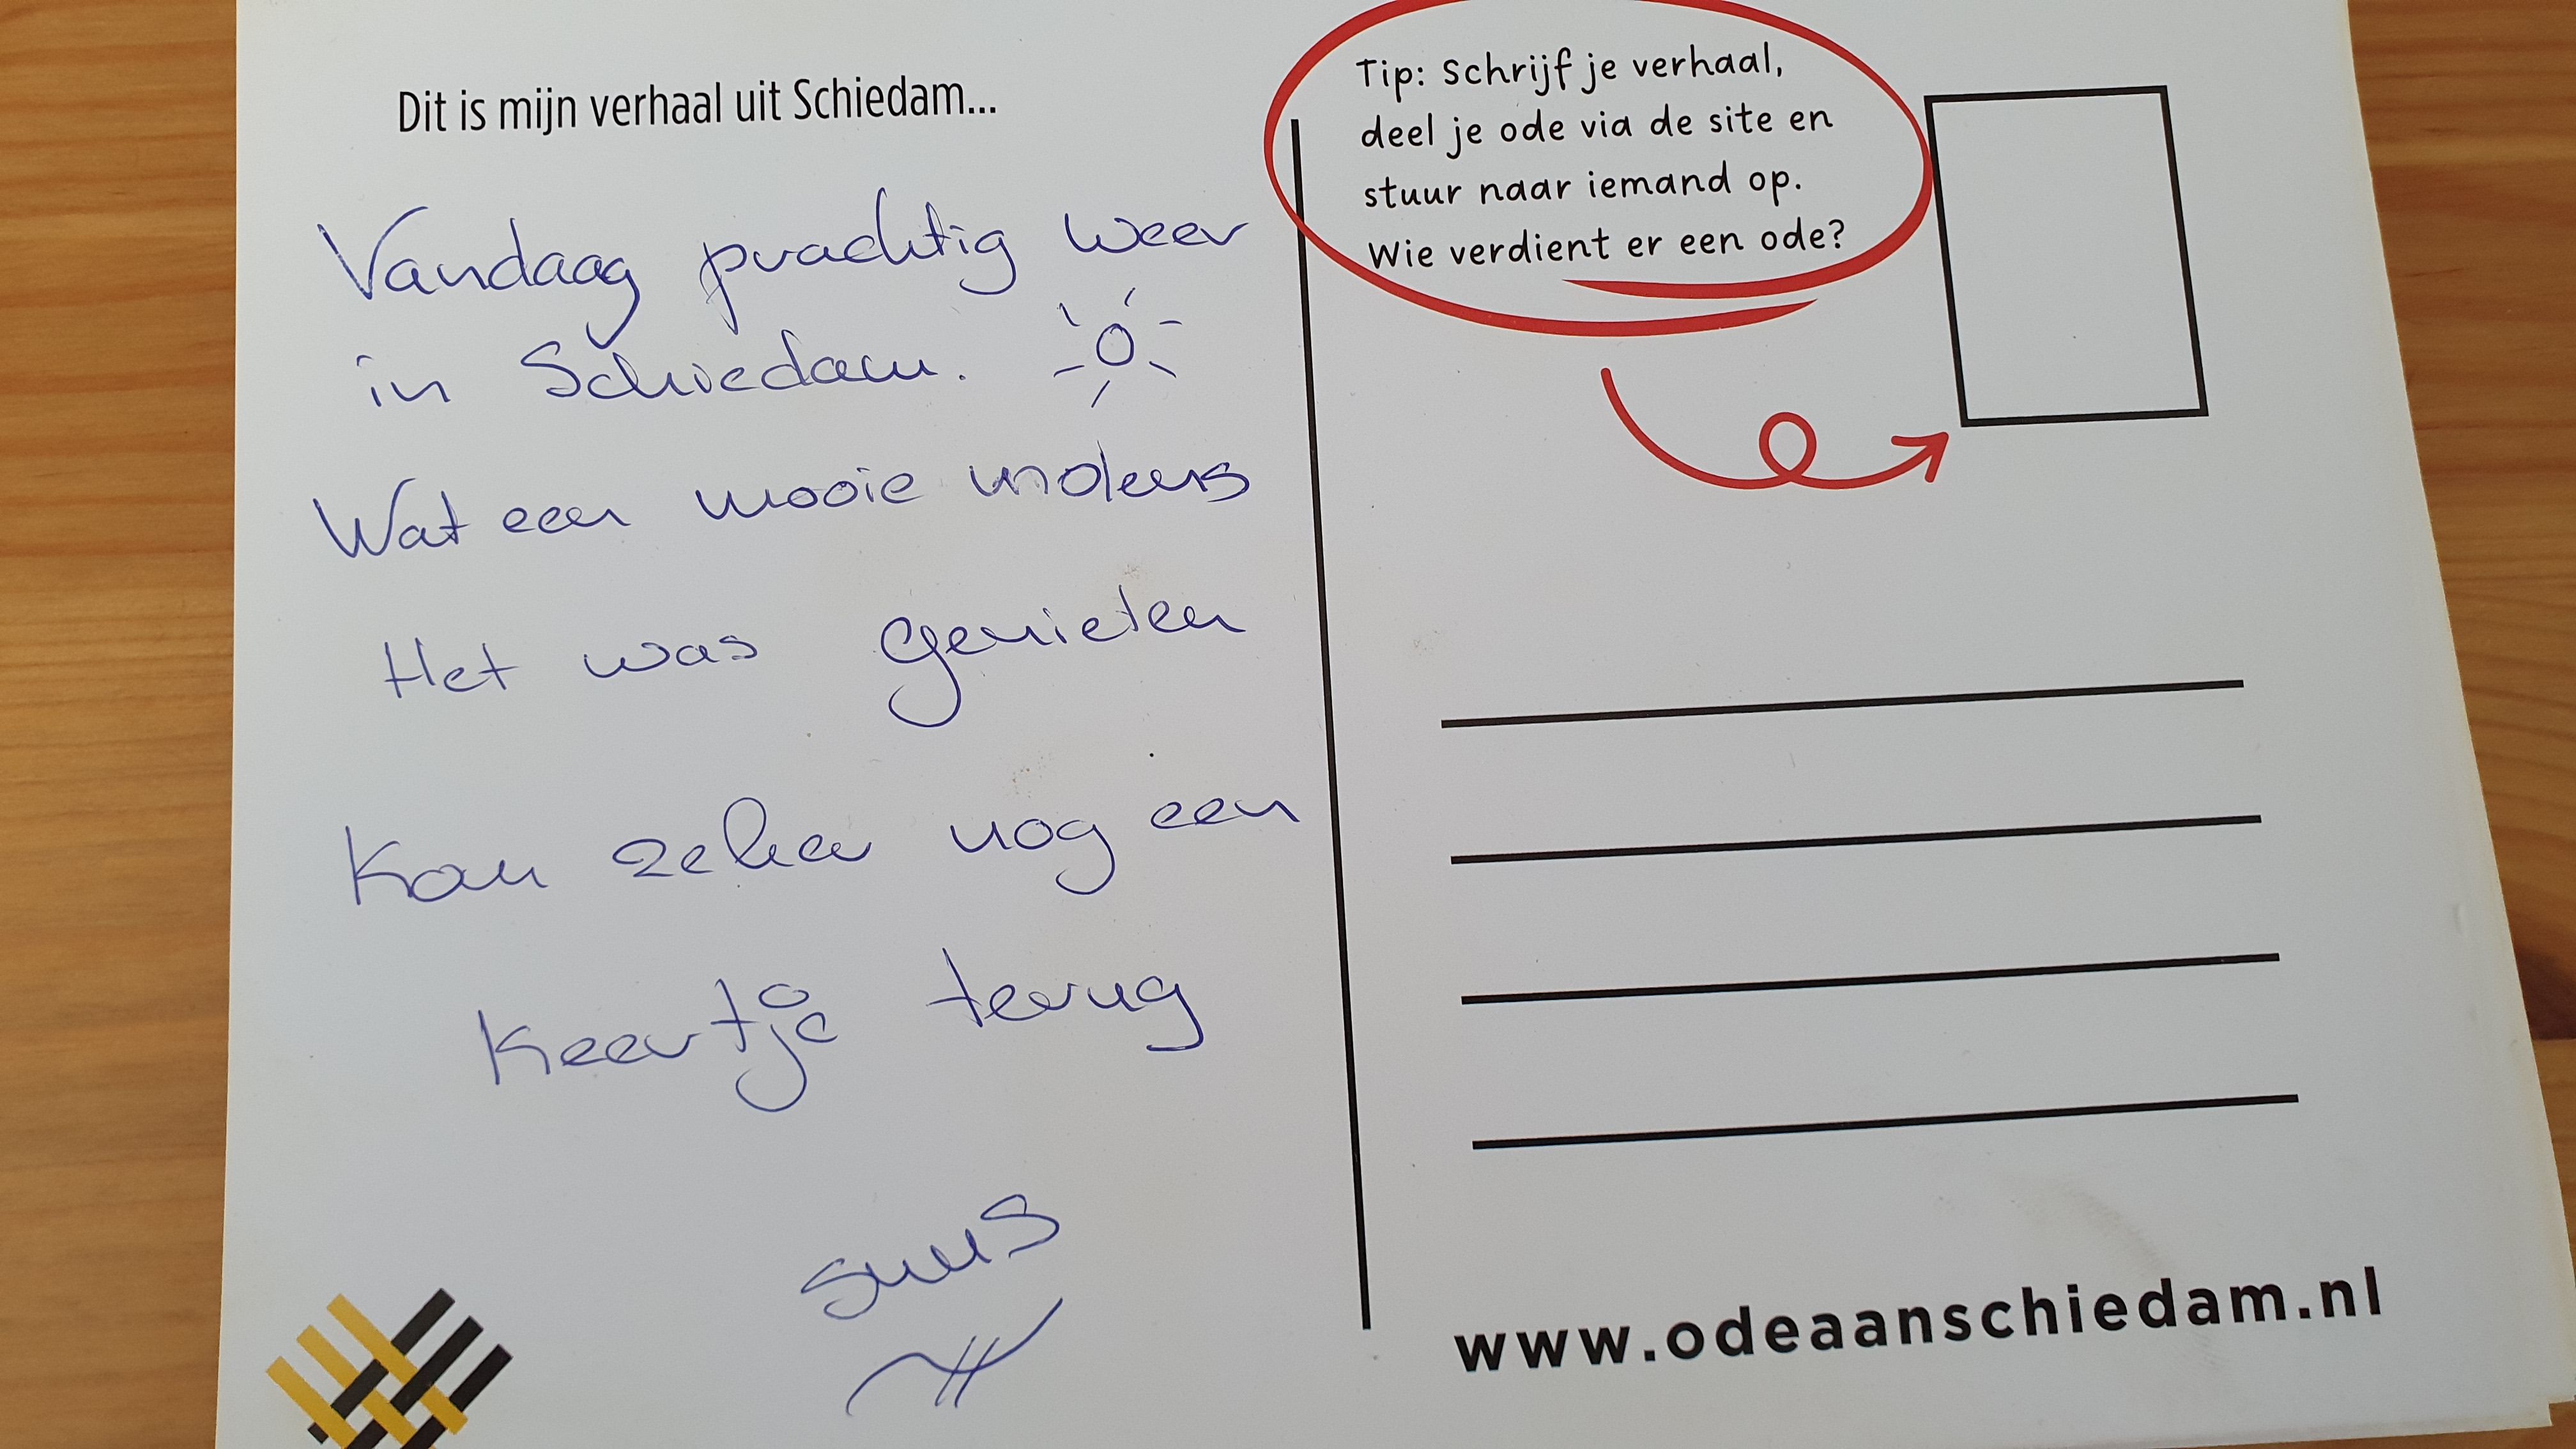 Dit is mijn verhaal uit Schiedam...
Vandaag prachtig weer
in Schiedam.
Wat een mooie molens
Het was genieten
Kom zeker nog een
keertje terug
suus
Tip: Schrijf je verhaal,
deel je ode via de site en
stuur naar iemand op.
Wie verdient er een ode?
www.odeaanschiedam.nl